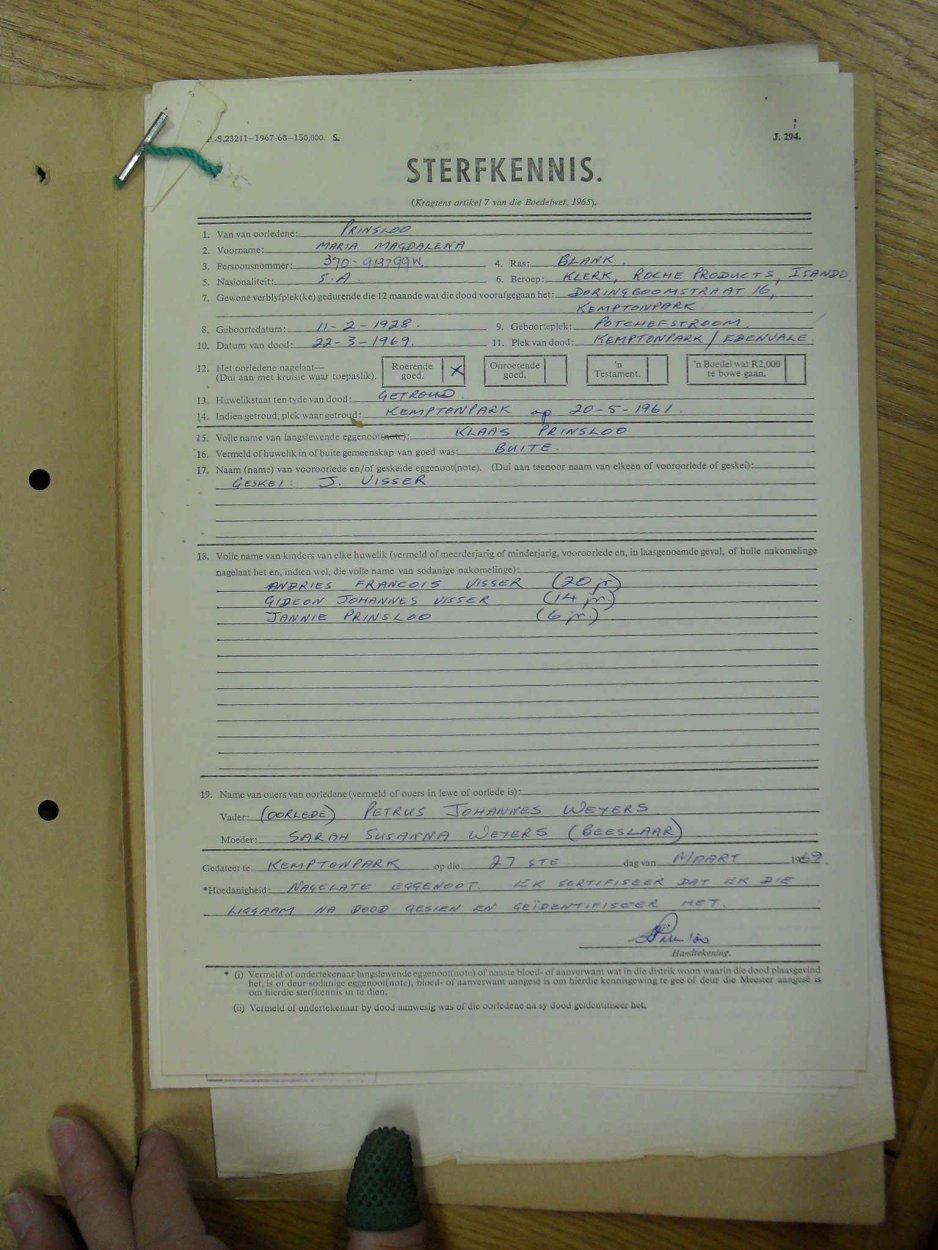 P.-S.23211—1967-68—150,000. S.
J. 294.
STERFKENNIS.
(Kragtens artikel 7 van die Boedelwet, 1965).
1. Van van oorledene: PRINSLOO
2. Voorname: MARIA MAGDALENA
3. Persoonsnommer: 370-913799W. 4. Ras: BLANK.
5. Nasionaliteit: S.A. 6. Beroep: KLERK, ROCHE PRODUCTS, ISANDO
7. Gewone verblyfplek(ke) gedurende die 12 maande wat die dood voorafgegaan het: DORINGBOOMSTRAAT 16,
KEMPTONPARK
8. Geboortedatum: 11-2-1928. 9. Geboorteplek: POTCHEFSTROOM.
10. Datum van dood: 22-3-1969. 11. Plek van dood: KEMPTONPARK/EDENVALE
12. Het oorledene nagelaat—
(Dui aan met kruisie waar toepaslik).
Roerende goed. X
Onroerende goed.
'n Testament.
'n Boedel wat R2,000 te bowe gaan.
13. Huwelikstaat ten tyde van dood: GETROUD.
14. Indien getroud, plek waar getroud: KEMPTONPARK op 20-5-1961.
15. Volle name van langslewende eggenoot(note): KLAAS PRINSLOO
16. Vermeld of huwelik in of buite gemeenskap van goed was: BUITE.
17. Naam (name) van vooroorlede en/of geskeide eggenoot(note). (Dui aan teenoor naam van elkeen of vooroorlede of geskei):
GESKEI: J. VISSER
18. Volle name van kinders van elke huwelik (vermeld of meerderjarig of minderjarig, vooroorlede en, in laasgenoemde geval, of hulle nakomelinge
nagelaat het en, indien wel, die volle name van sodanige nakomelinge):
ANDRIES FRANCOIS VISSER (20 jr)
GIDEON JOHANNES VISSER (14 jr.)
JANNIE PRINSLOO (6 jr.)
19. Name van ouers van oorledene (vermeld of ouers in lewe of oorlede is):
Vader: (OORLEDE) PETRUS JOHANNES WEYERS
Moeder: SARAH SUSANNA WEYERS (BEESLAAR)
Gedateer te KEMPTONPARK op die 27 STE dag van MAART 1969.
*Hoedanigheid: NAGELATE EGGENOOT. EK SERTIFISEER DAT EK DIE
LIGGAAM NA DOOD GESIEN EN GEÏDENTIFISEER HET.
Handtekening.
* (i) Vermeld of ondertekenaar langslewende eggenoot(note) of naaste bloed- of aanverwant wat in die distrik woon waarin die dood plaasgevind
het, is of deur sodanige eggenoot(note), bloed- of aanverwant aangesê is om hierdie kennisgewing te gee of deur die Meester aangesê is
om hierdie sterfkennis in te dien.
(ii) Vermeld of ondertekenaar by dood aanwesig was of die oorledene na sy dood geïdentifiseer het.